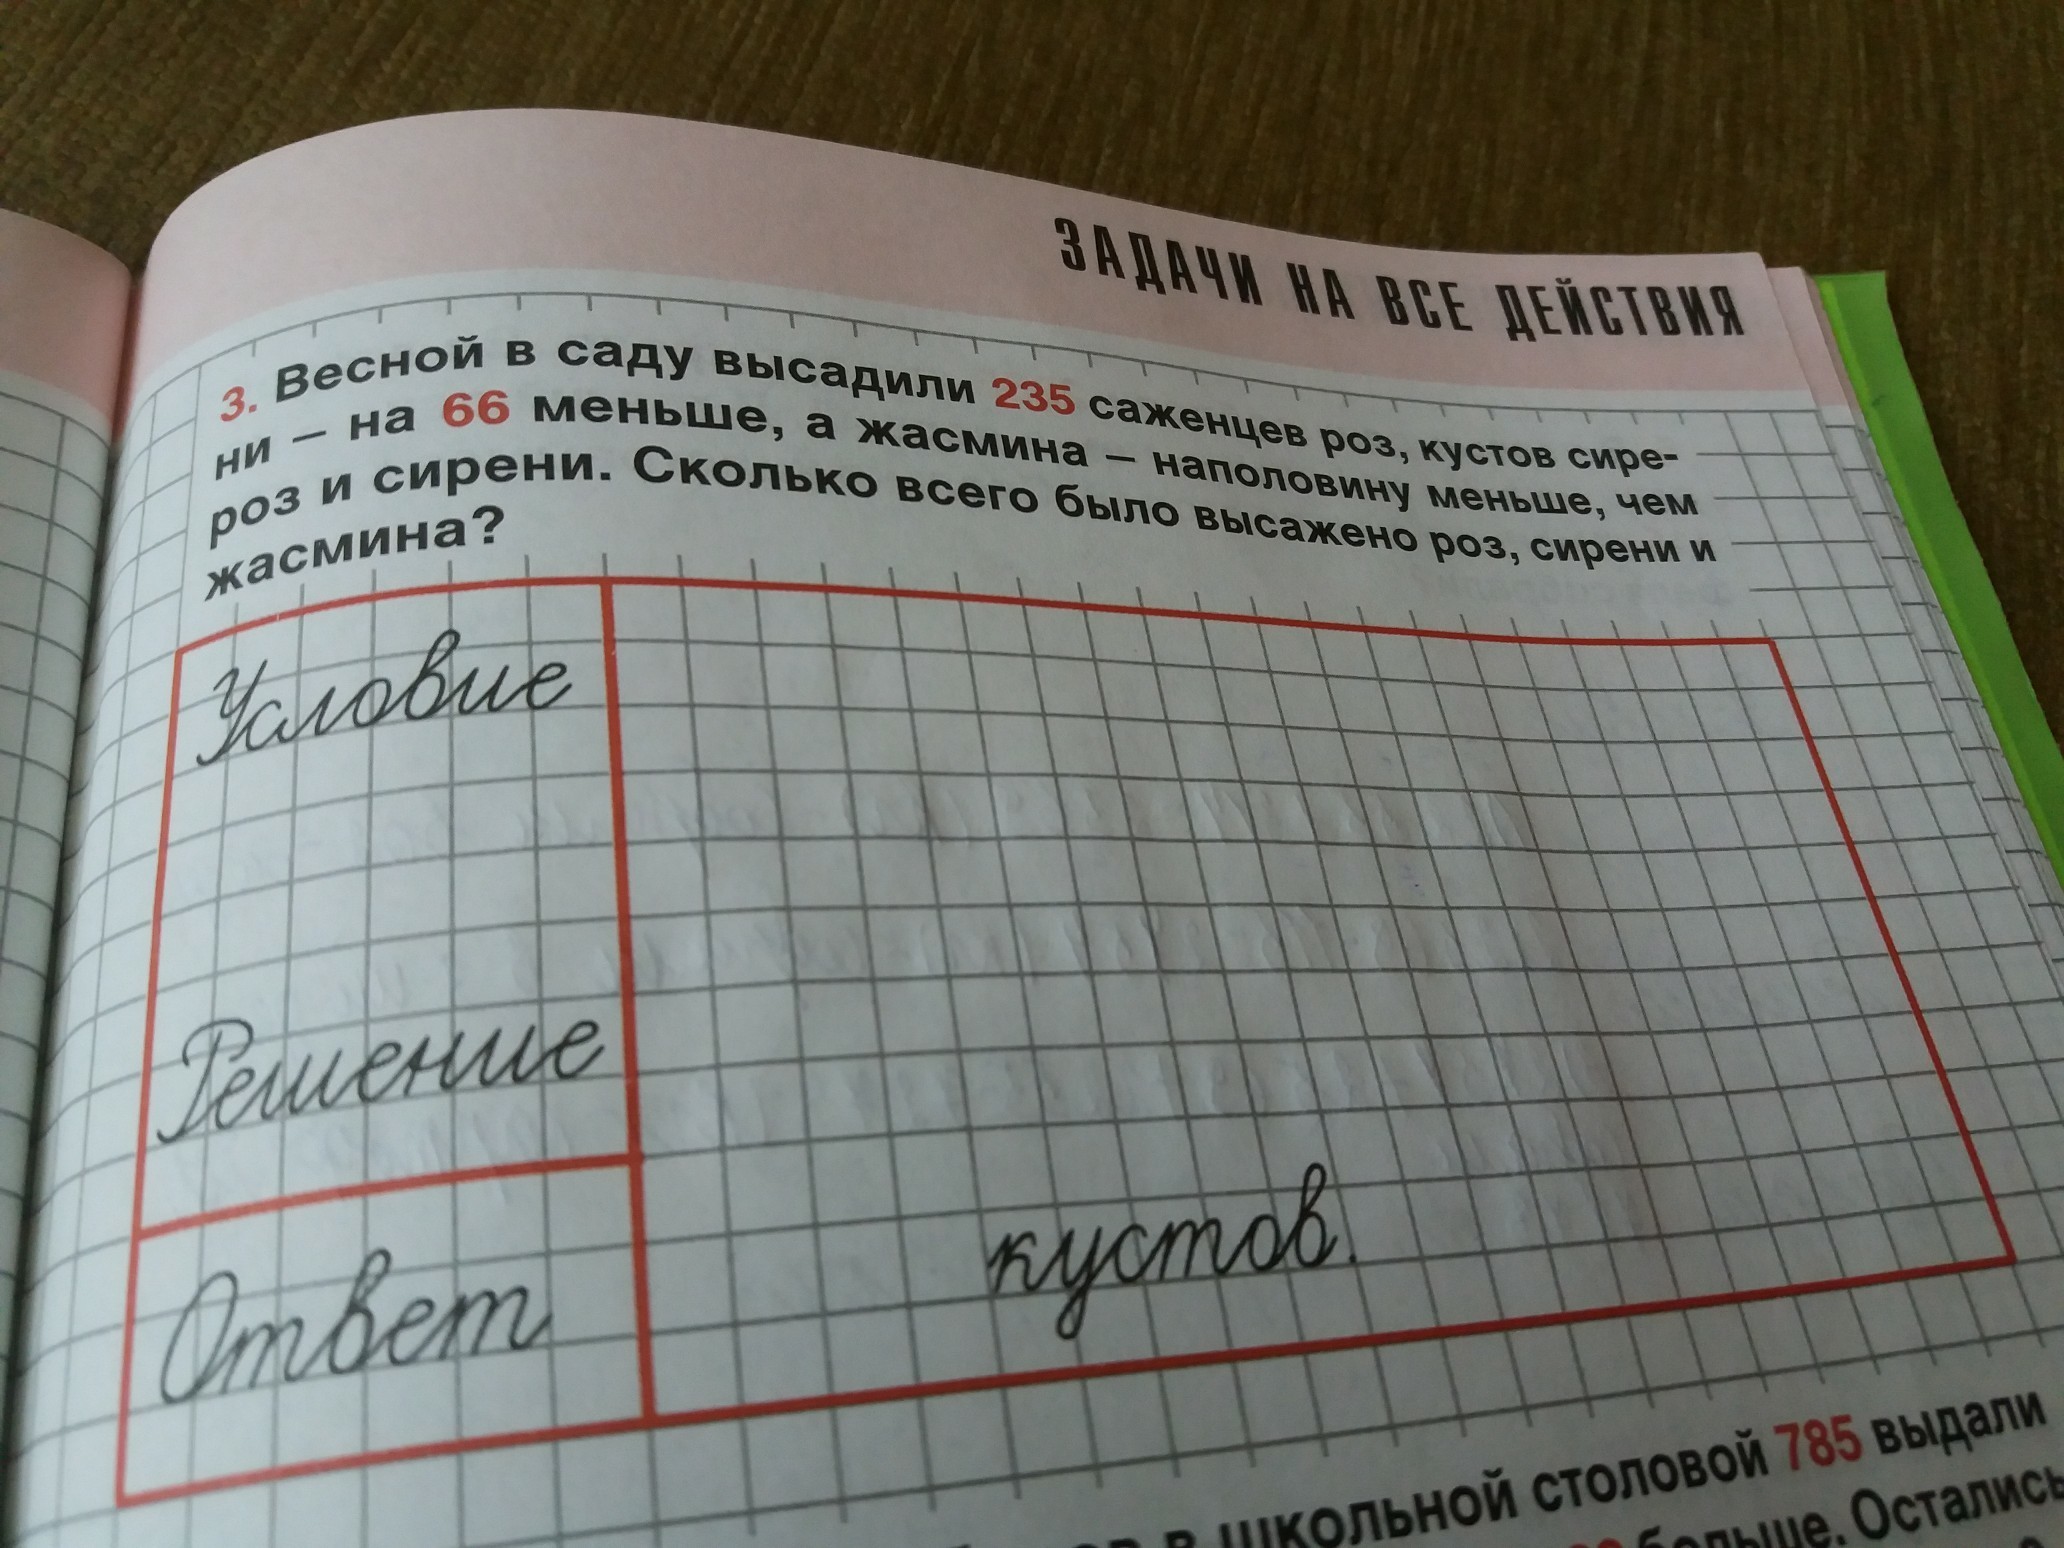 ЗАДАЧИ НА ВСЕ ДЕЙСТВИЯ
3. Весной в саду высадили 235 саженцев роз, кустов сире-
ни – на 66 меньше, а жасмина – наполовину меньше, чем
роз и сирени. Сколько всего было высажено роз, сирени и
жасмина?
Условие
Решение
Ответ
кустов.
в школьной столовой 785 выдали
больше. Остались